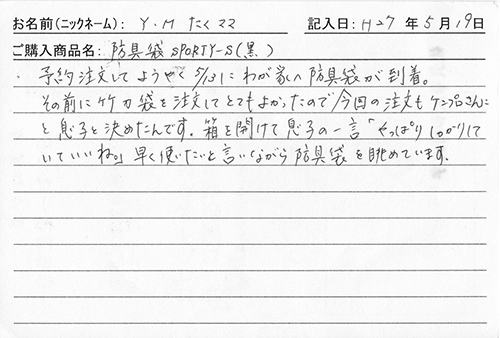 お名前(ニックネーム): Y・M たくママ 記入日: H27 年 5 月 19日
ご購入商品名: 防具袋 SPORTY-S(黒)
・予約注文して ようやく 5/13に わが家へ 防具袋が 到着。
その前に 竹刀袋を 注文して とてもよかったので 今回の注文も ケンプロさんに
と 息子と 決めたんです。箱を開けて 息子の一言「やっぱり しっかりして
いていいね。」早く使いたいと 言いながら 防具袋を 眺めています。